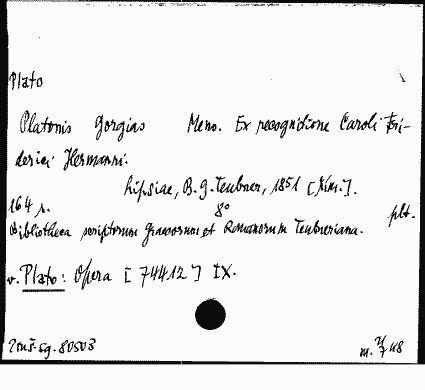 Plato
Platonis Gorgias Meno. Ex recognitione Caroli Fri-
derici Hermanni.
Lipsiae, B.G. Teubner, 1851
164 s. 8° plt.
Bibliotheca scriptorum Graecorum et Romanorum Teubneriana.
v. Plato: Opera [74412] IX.
zg. 80503